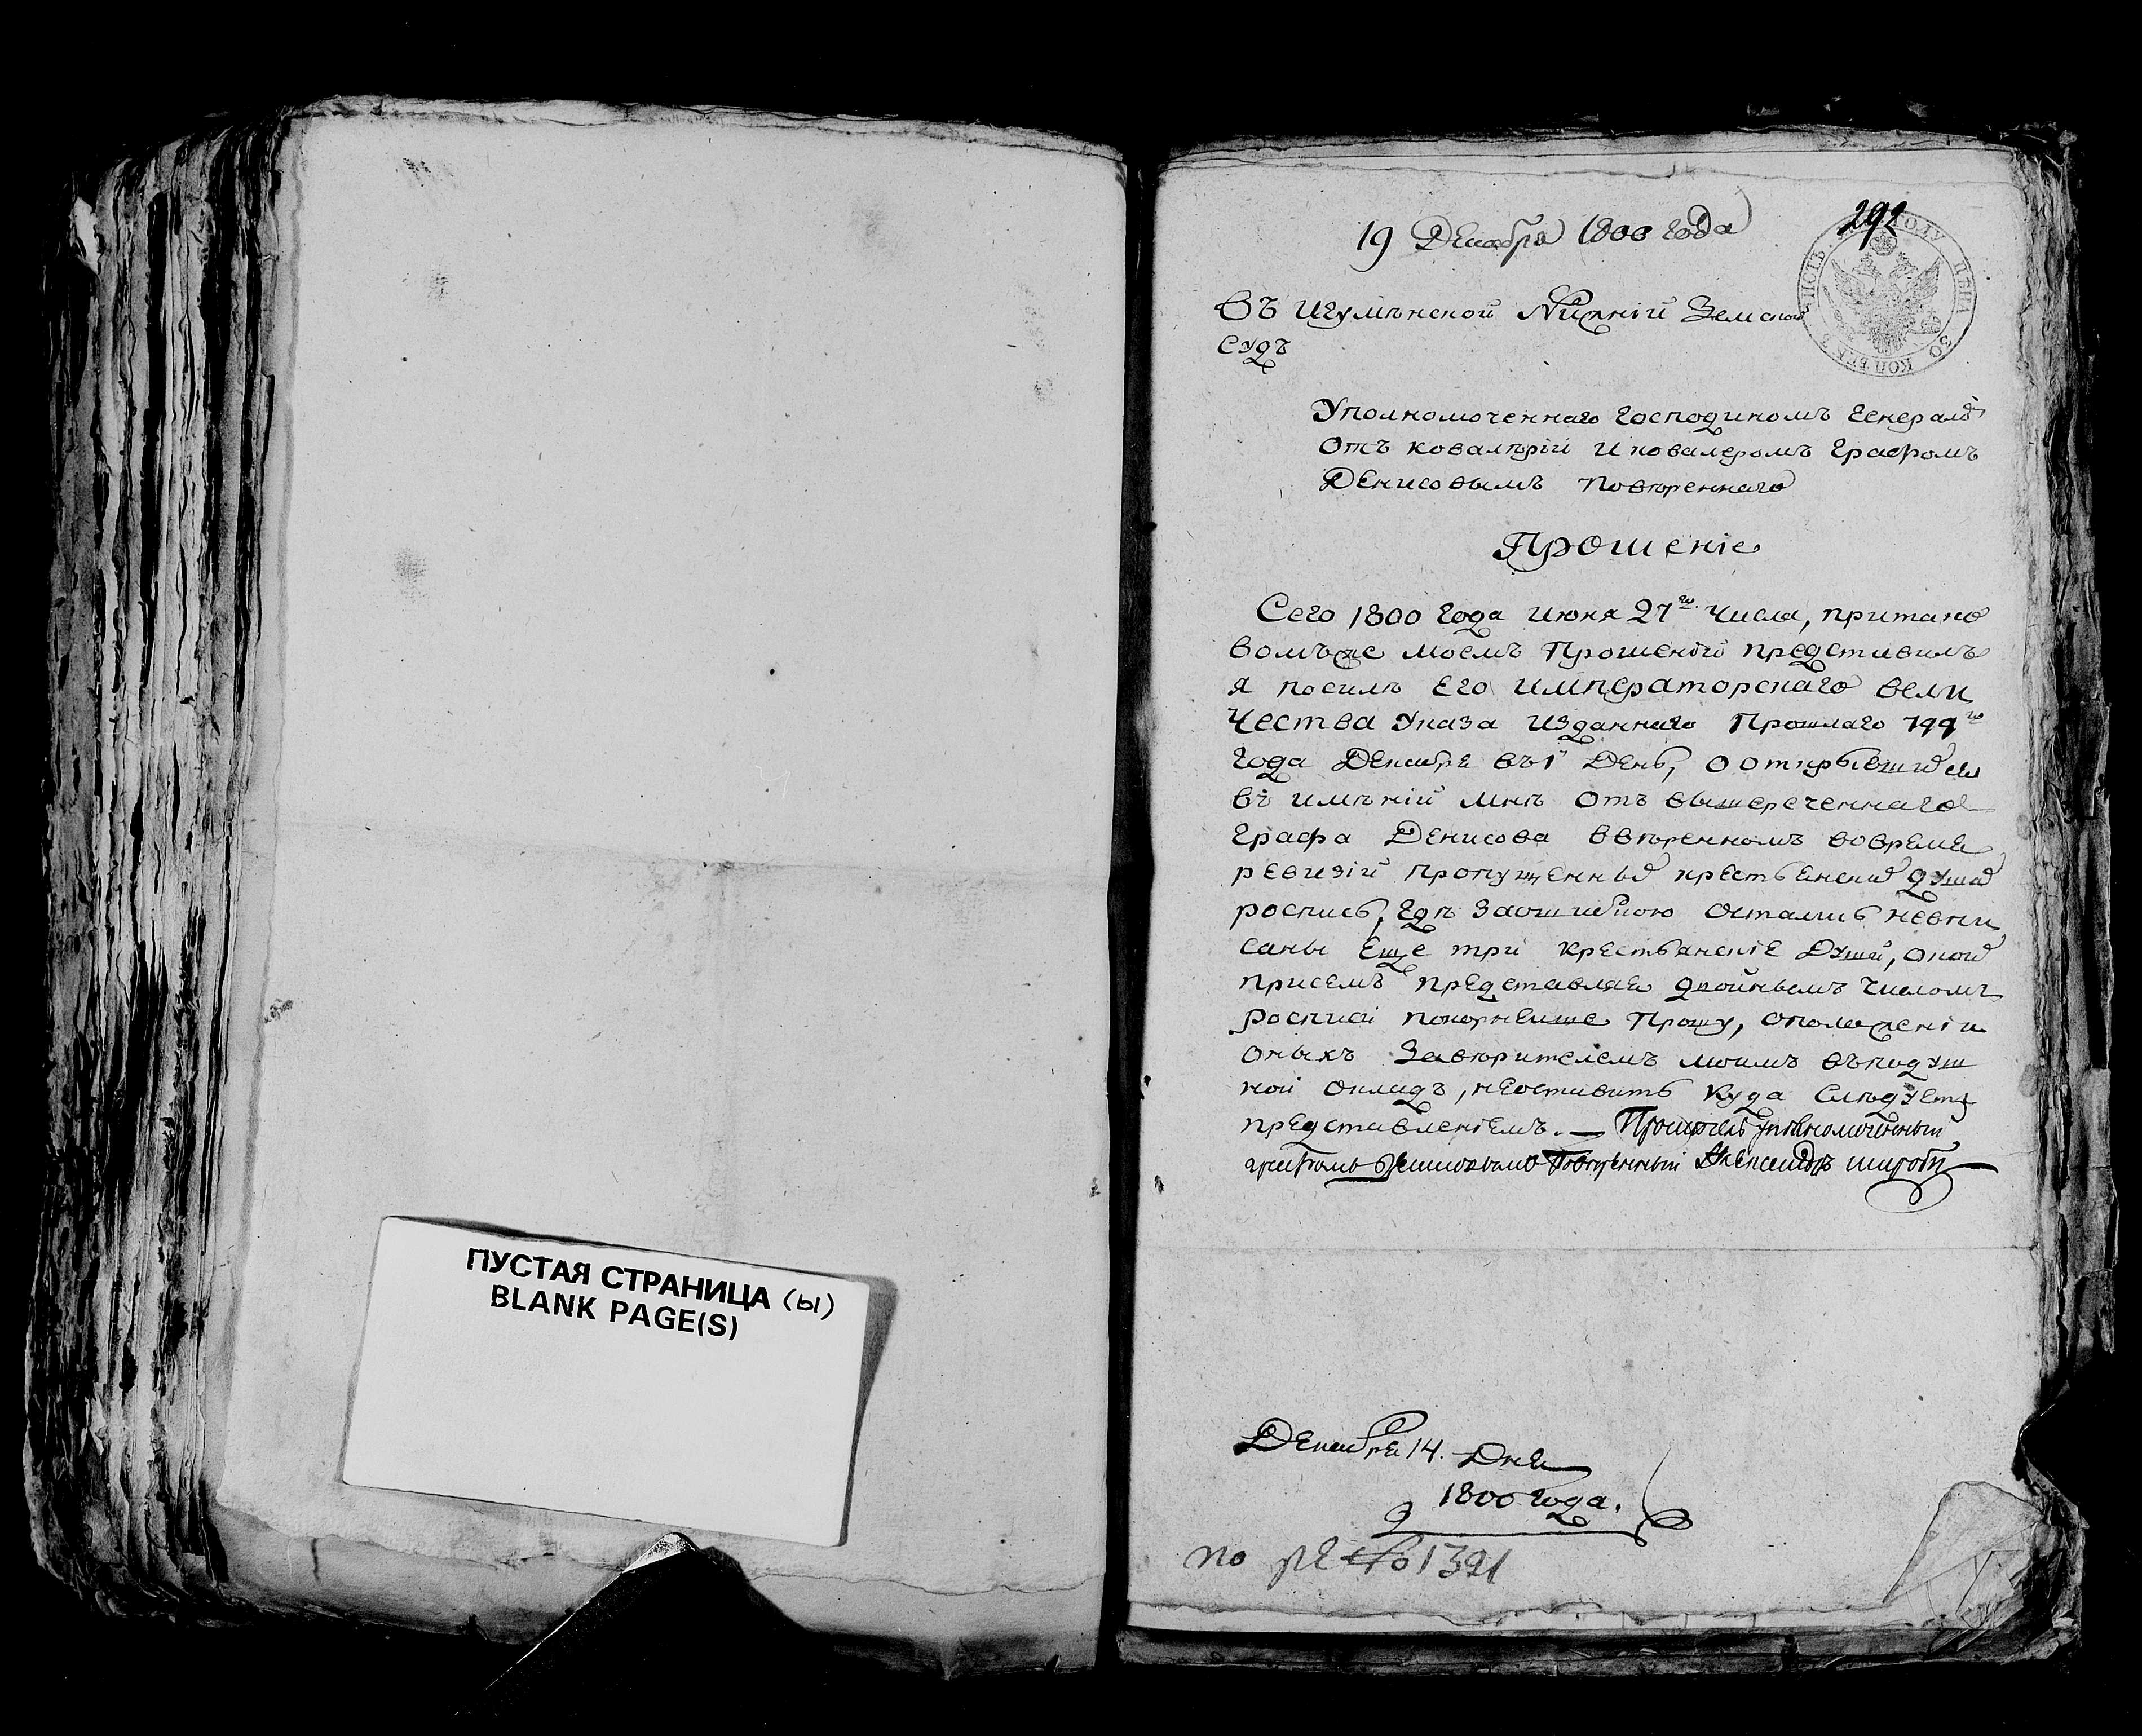 ПУСТАЯ СТРАНИЦА (Ы)
BLANK PAGE(S)
292
19 Декабря 1800 года
ЦѢНА 30 КОПѢЕКЪ
Въ Игумѣнской Нижній Земской
судъ
Уполномоченнаго Господиномъ Генераломъ
Отъ ковалѣрій и ковалеромъ Графомъ
Денисовымъ Повѣреннаго
Прошеніе
Сего 1800 Года июня 27го Числа, притако
вомъже моемъ Прошеній представилъ
я посилѣ Его императорскаго вели
чества Указа изданнаго Прошлаго 799го
года Декабря въ 1 День, о открывшихся
въ имѣній мнѣ отъ вышереченнаго
Графа Денисова ввѣренномъ вовремя
ревизій пропущенныхъ крестьянскихъ душахъ
роспись, гдѣ заошибкою остались невпи
саны Еще три крестьянскіе Души, о коихъ
присемъ представляя двойнымъ числомъ
росписи покорнейше Прошу, оположеніи
оныхъ Завѣрителемъ моимъ въподуш
ной окладъ, неоставить куда Слѣдуетъ
представленіемъ. — уполномоченный
графомъ Денисовымъ Повѣренный Александръ
Декабря 14. Дня
1800 года.
по ре № 1391